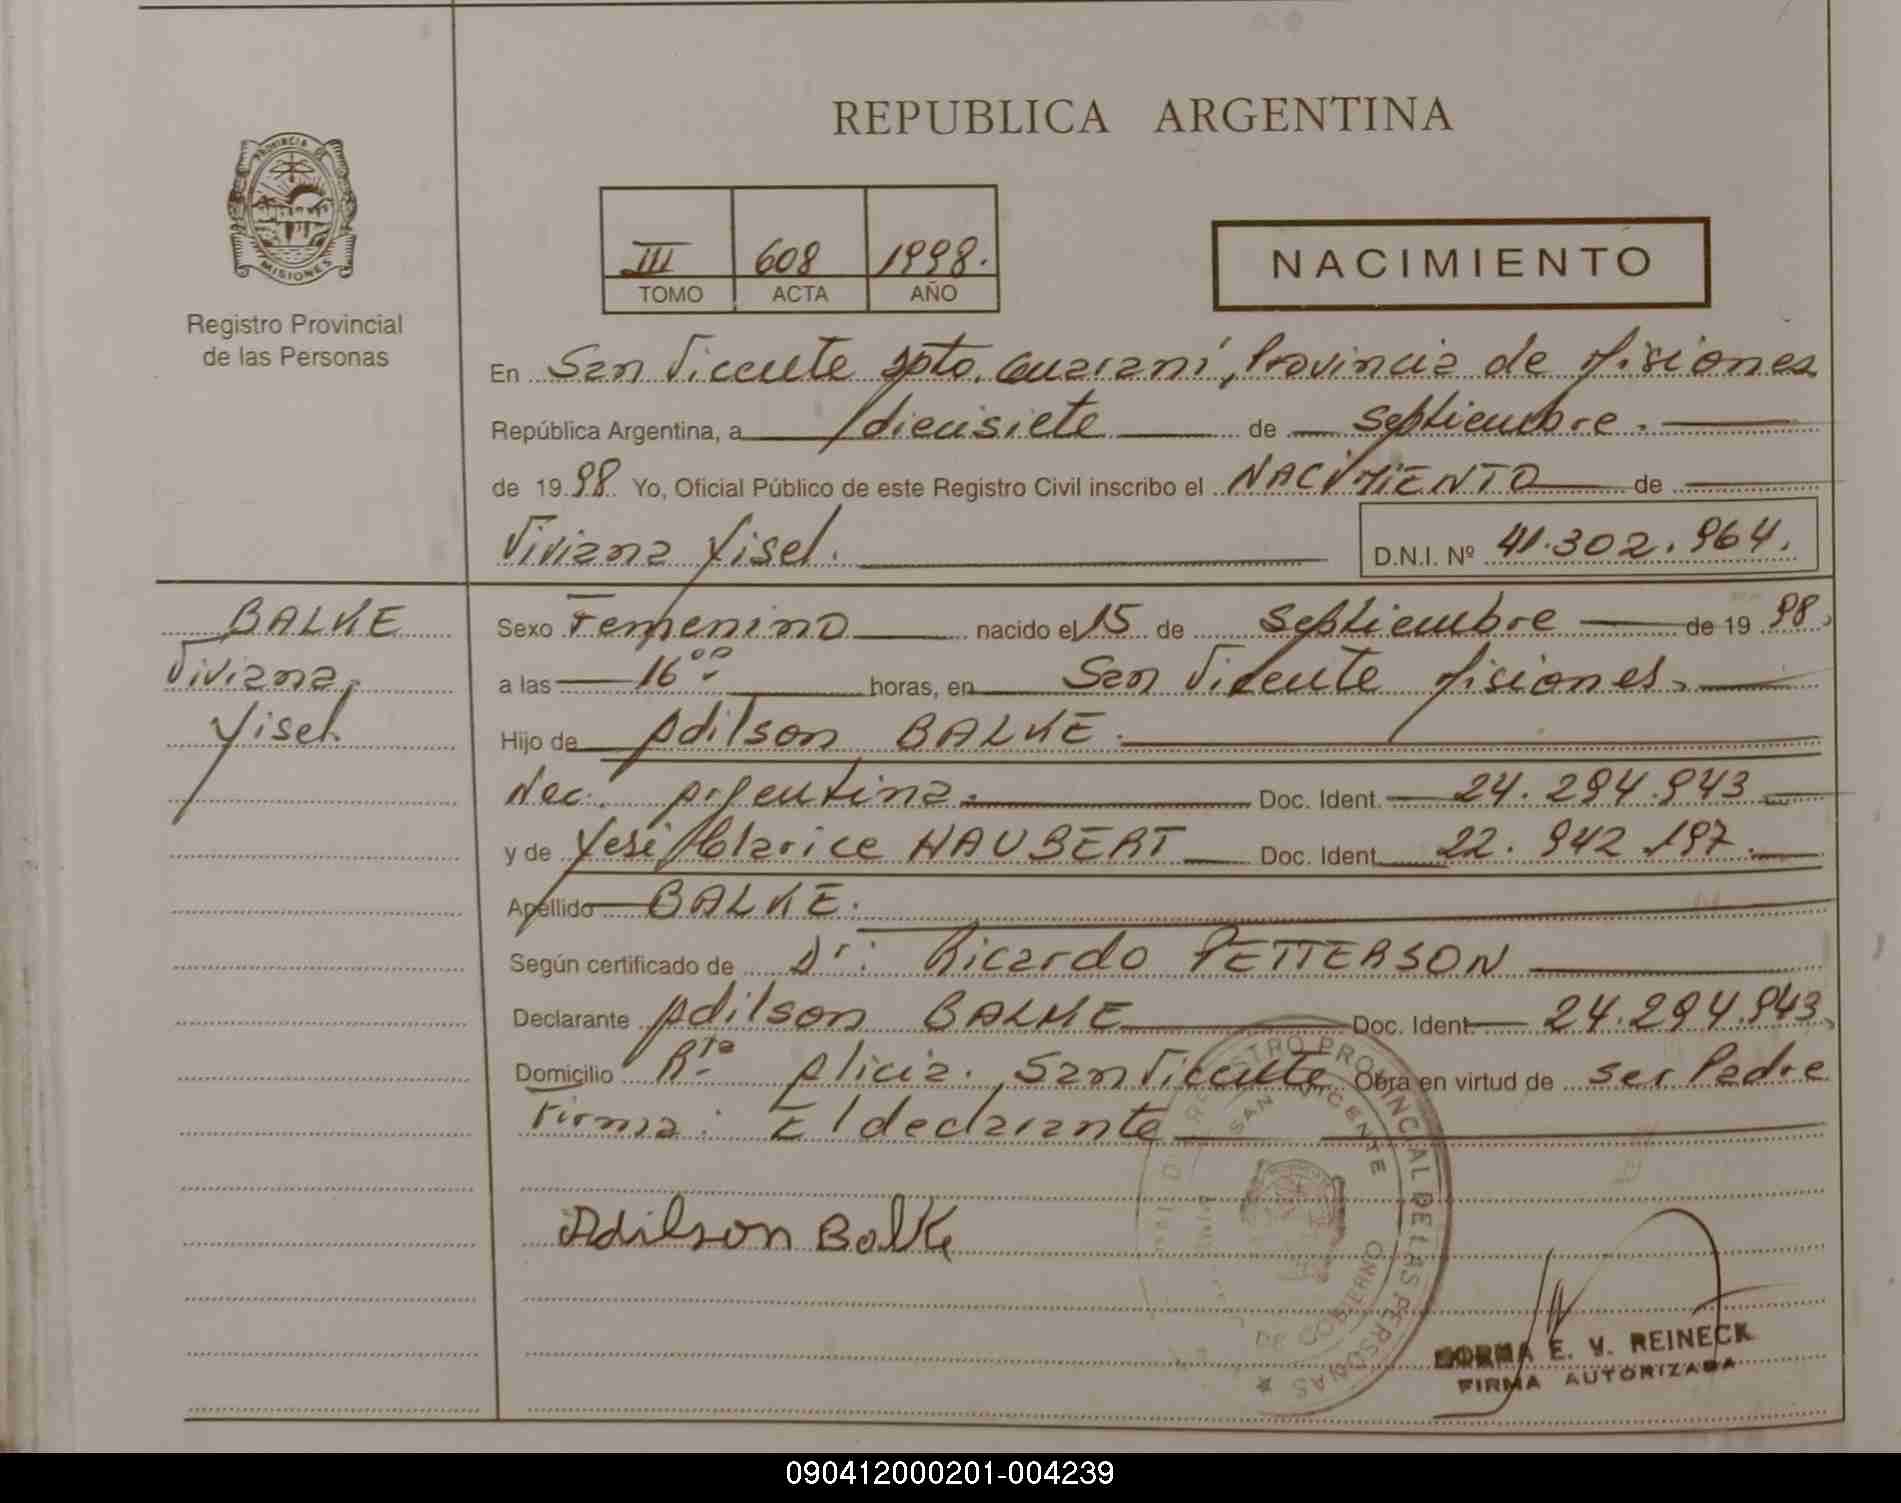 REPUBLICA ARGENTINA
PROVINCIA DE
MISIONES
Registro Provincial
de las Personas
III 608 1998.
TOMO ACTA AÑO
NACIMIENTO
En San Vicente Dpto. Guaraní, Provincia de Misiones
República Argentina, a diecisiete de Septiembre.
de 1998 Yo, Oficial Público de este Registro Civil inscribo el NACIMIENTO de
Viviana Yisel. D.N.I. Nº 41.302.964.
BALKE
Viviana,
Yisel.
Sexo Femenino nacido el 15 de Septiembre de 1998,
a las 16°° horas, en San Vicente Misiones.
Hijo de Adilson BALKE.
Nac. Argentina. Doc. Ident. 24.294.943
y de Yesi Clarice HAUBERT Doc. Ident. 22.942.197.
Apellido BALKE.
Según certificado de Dr: Ricardo PETTERSON
Declarante Adilson BALKE Doc. Ident. 24.294.943,
Domicilio Rta Alicia. San Vicente Obra en virtud de ser Padre
Firma: El declarante
Adilson Balke
REGISTRO PROVINCIAL DE LAS PERSONAS
SAN VICENTE
DE GOBIERNO
NORMA E. V. REINECK
FIRMA AUTORIZADA
090412000201-004239